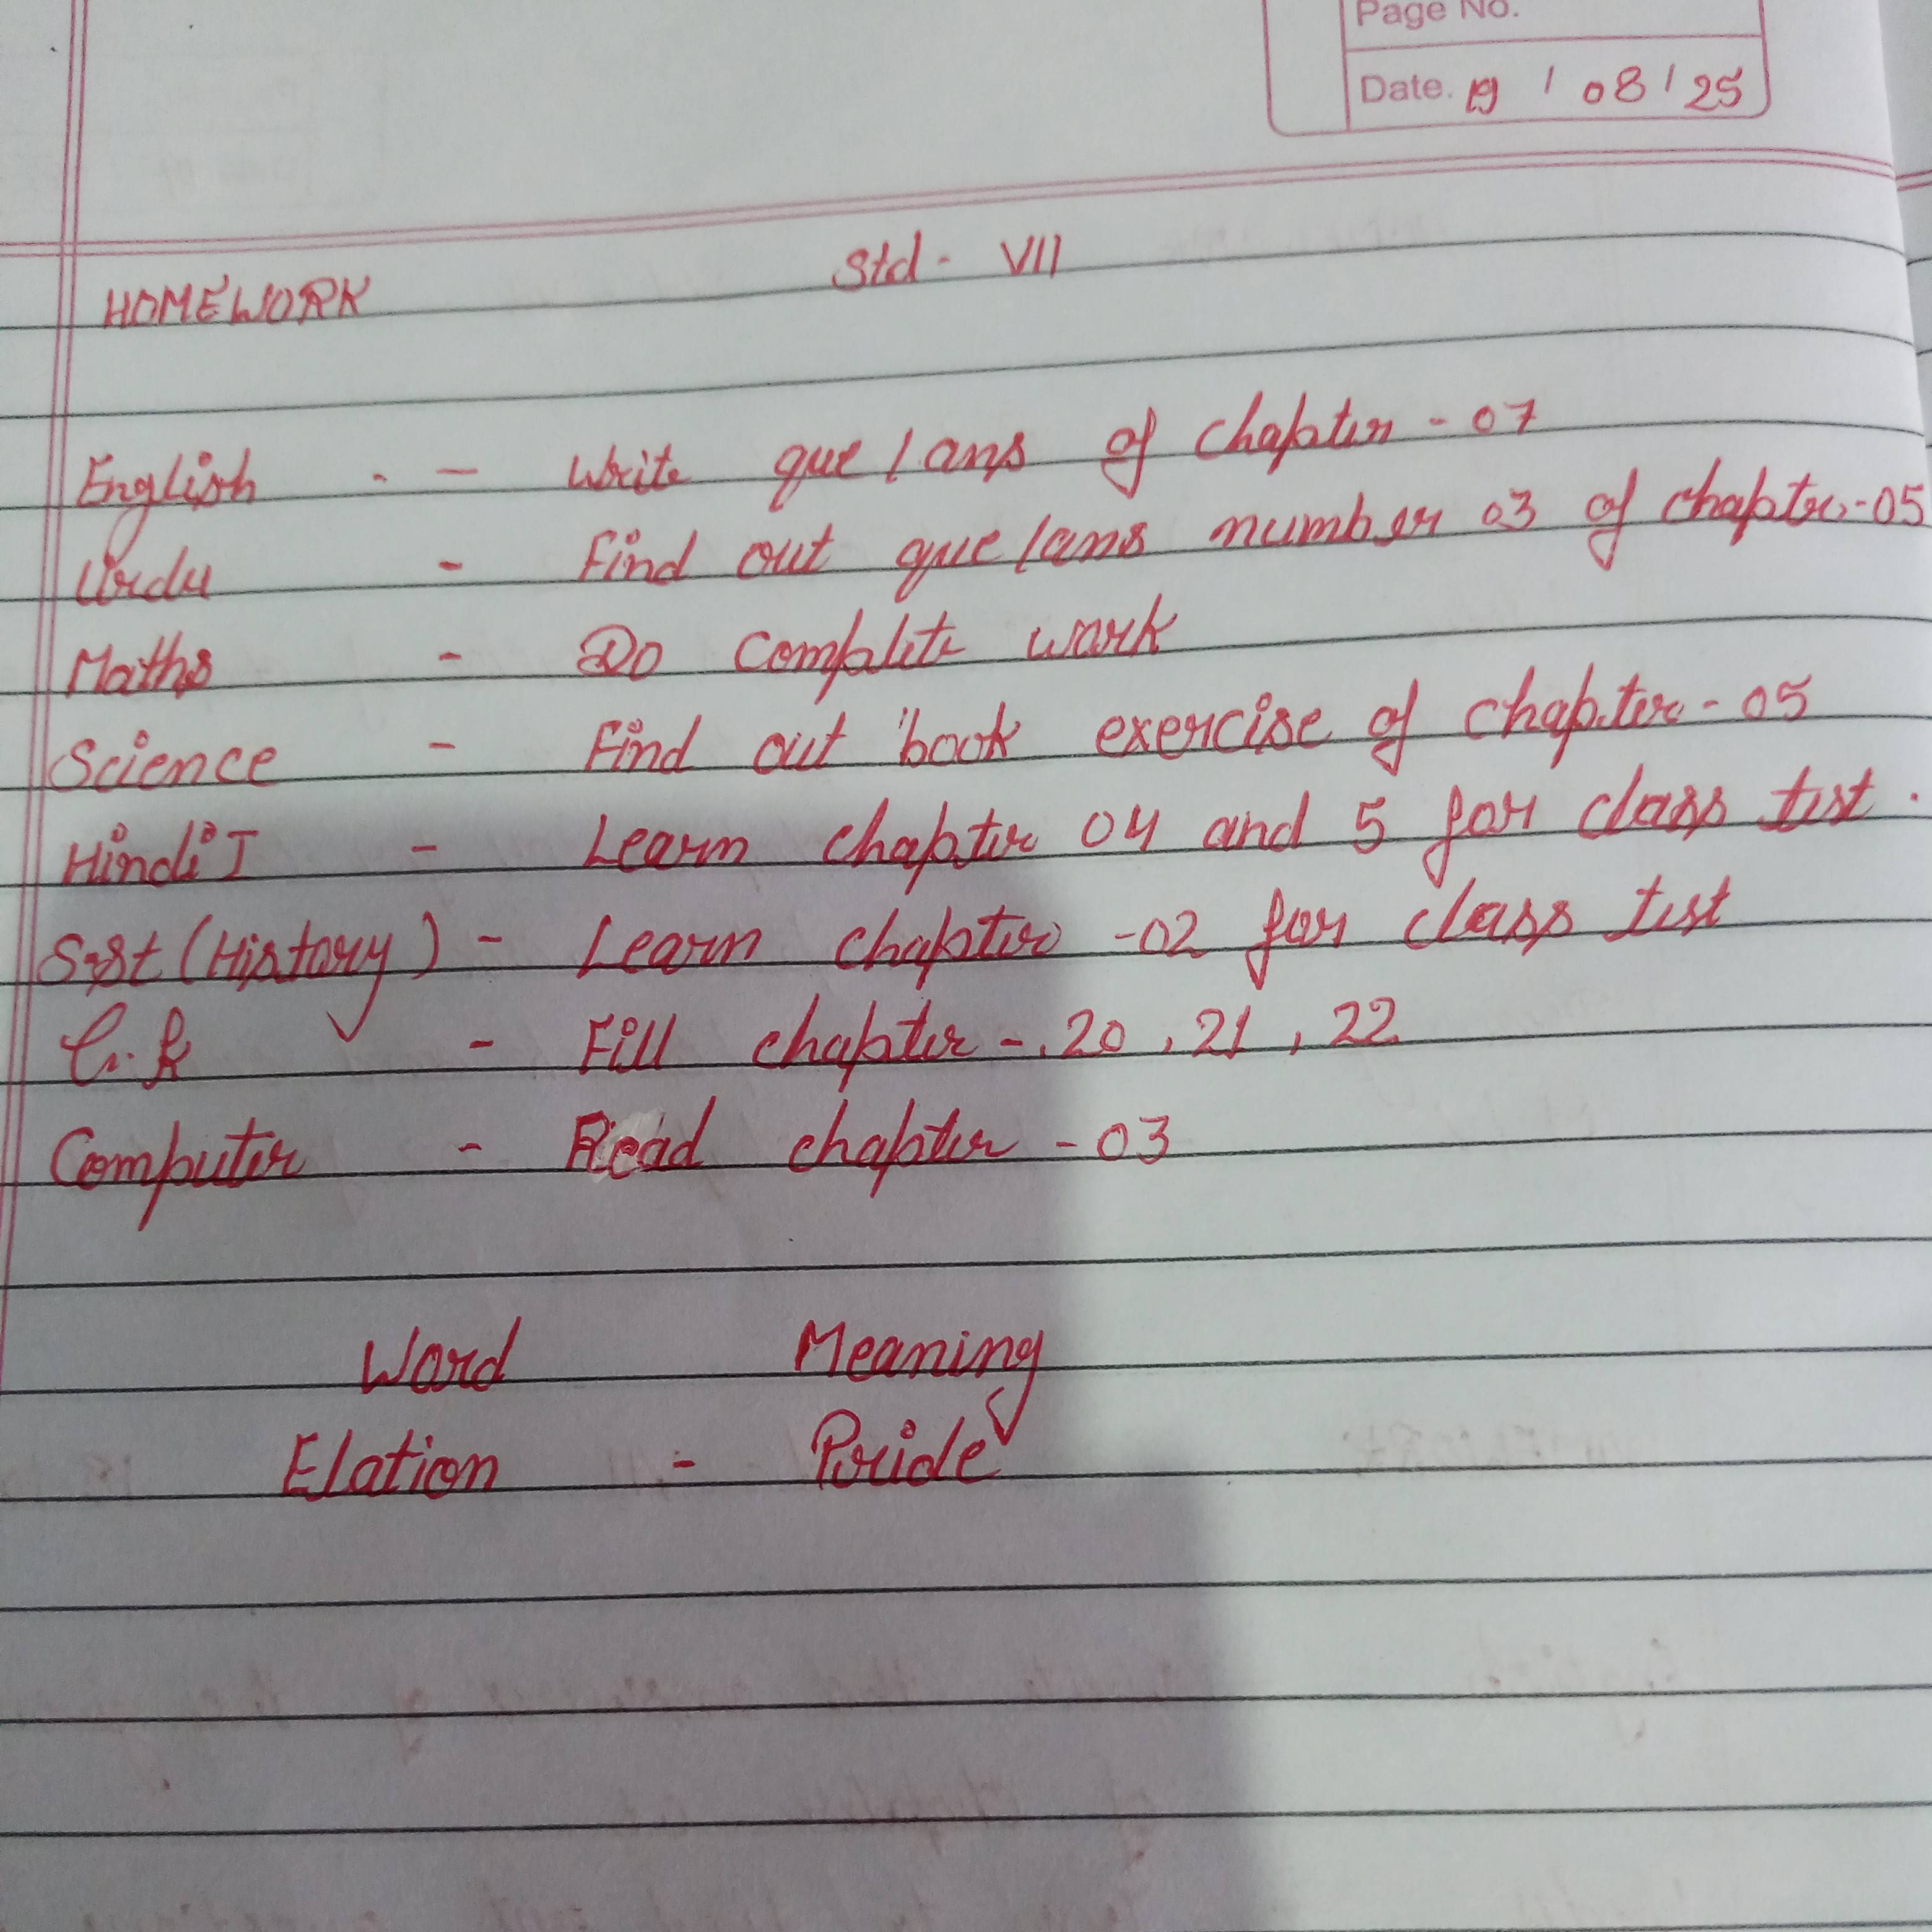 Page No.
Date. 19 / 08 / 25
Std - VII
HOMEWORK
English - - Write que / ans of chapter - 07
Urdu - Find out que / ans number 03 of chapter - 05
Maths - Do complete work
Science - Find out book exercise of chapter - 05
Hindi I - Learn chapter 04 and 5 for class test .
S.st (History) - Learn chapter - 02 for class test
G.K - Fill chapter - 20 , 21 , 22
Computer - Read chapter - 03
Word Meaning
Elation - Pride